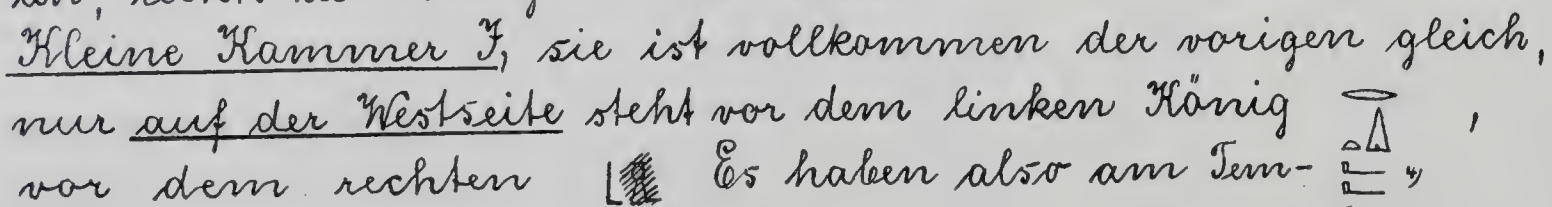 Kleine Kammer J, sie ist vollkommen der vorigen gleich,
nur auf der Westseite steht vor dem linken König 𓂋𓏙𓏏𓂝𓂝,
vor dem rechten Es haben also am Tem- 4)